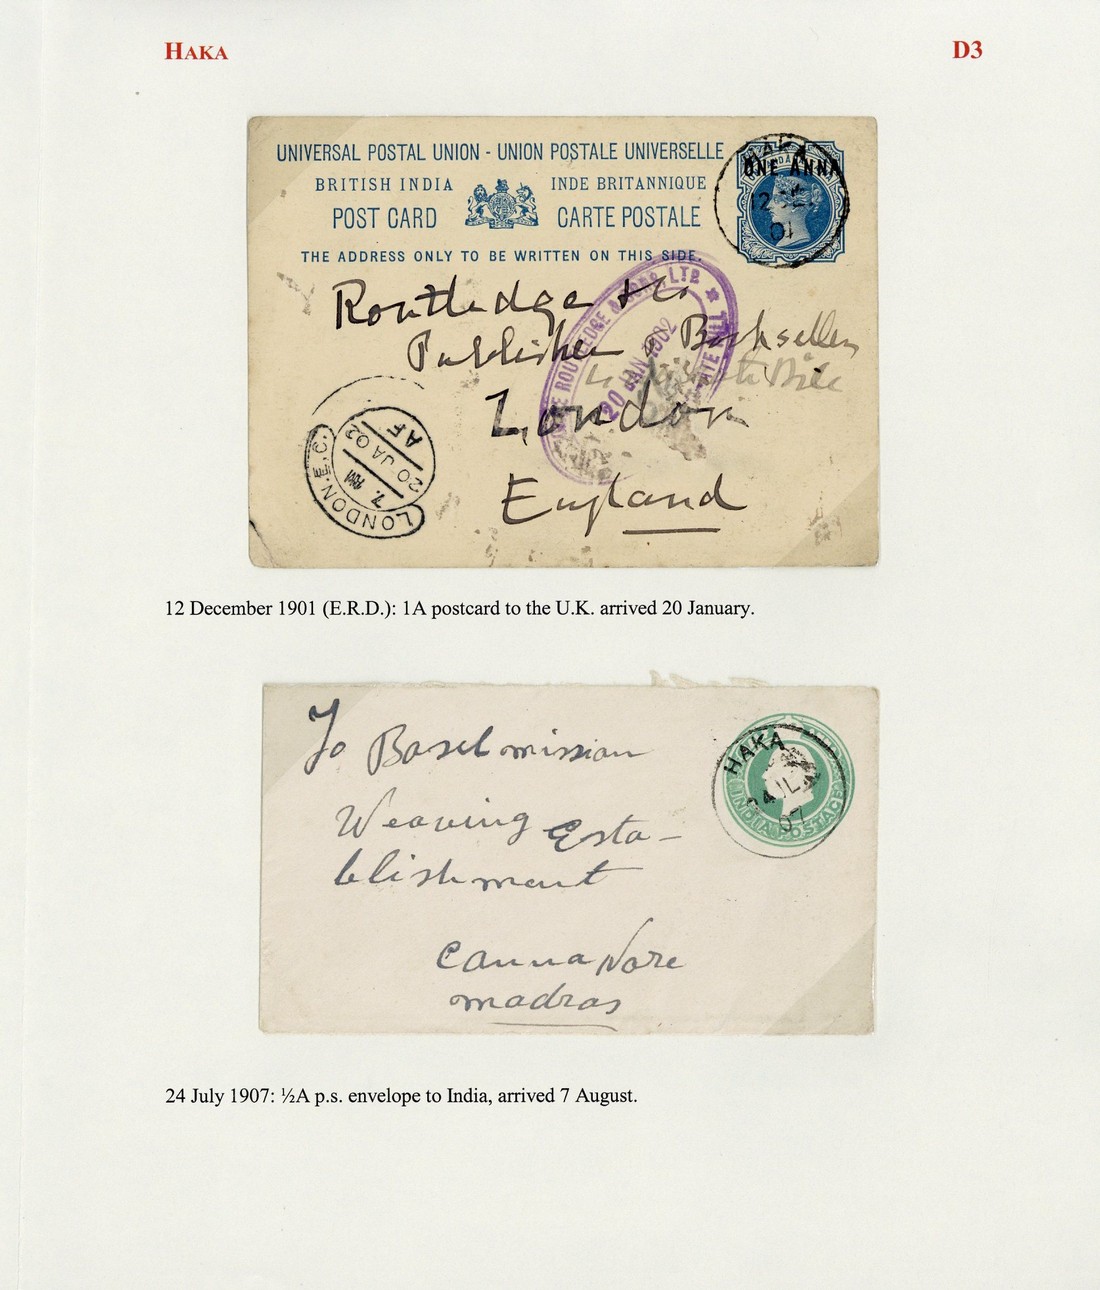 HAKA
D3
UNIVERSAL POSTAL UNION - UNION POSTALE UNIVERSELLE
BRITISH INDIA INDE BRITANNIQUE
POST CARD CARTE POSTALE
THE ADDRESS ONLY TO BE WRITTEN ON THIS SIDE.
HAKA
ONE ANNA
12 DE
01
Routledge & Co.
Publishers & Booksellers
London
England
ROUTLEDGE & SONS, LTD
20 JAN 1902
LONDON. E.C.
7. AM
20 JA 02
AF
12 December 1901 (E.R.D.): 1A postcard to the U.K. arrived 20 January.
To Basel mission
Weaving Esta-
blishment
CannaNore
madras
HAKA
24 JL
07
INDIA POSTAGE
24 July 1907: ½A p.s. envelope to India, arrived 7 August.